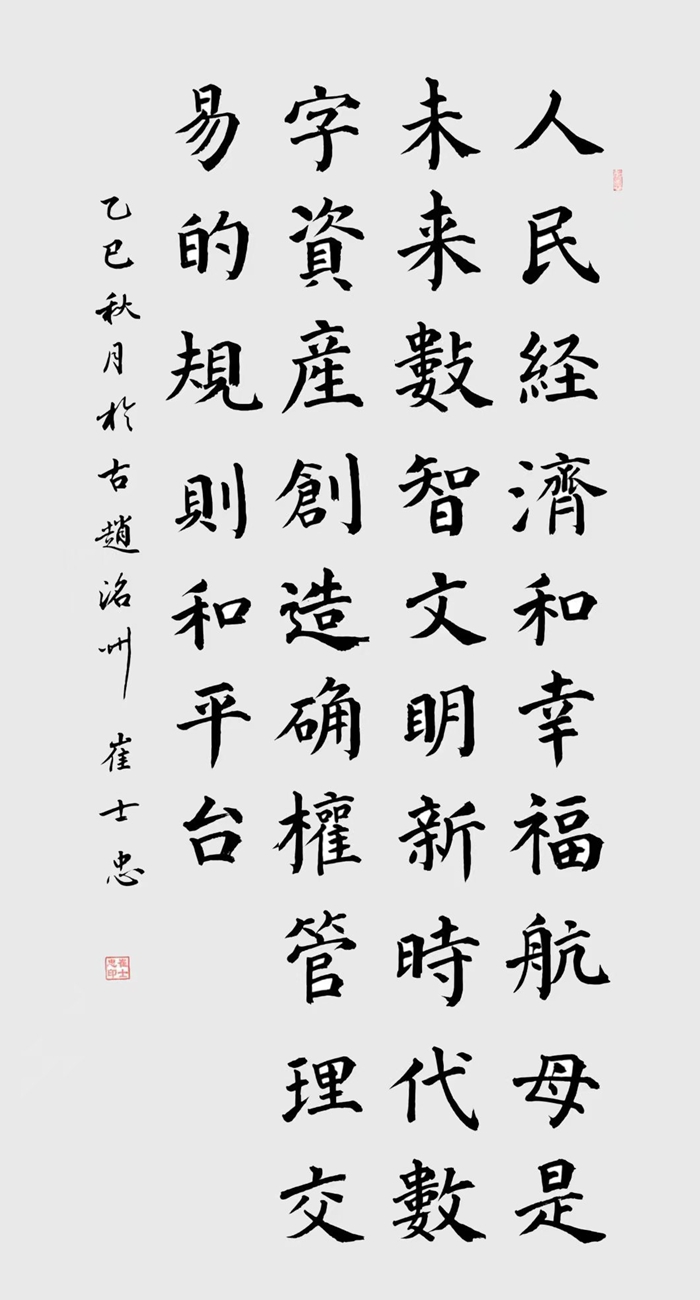 人民経濟和幸福航母是
未来數智文明新時代數
字資産創造确權管理交
易的規則和平台
乙巳秋月於古趙洺州 崔士忠
崔士忠印